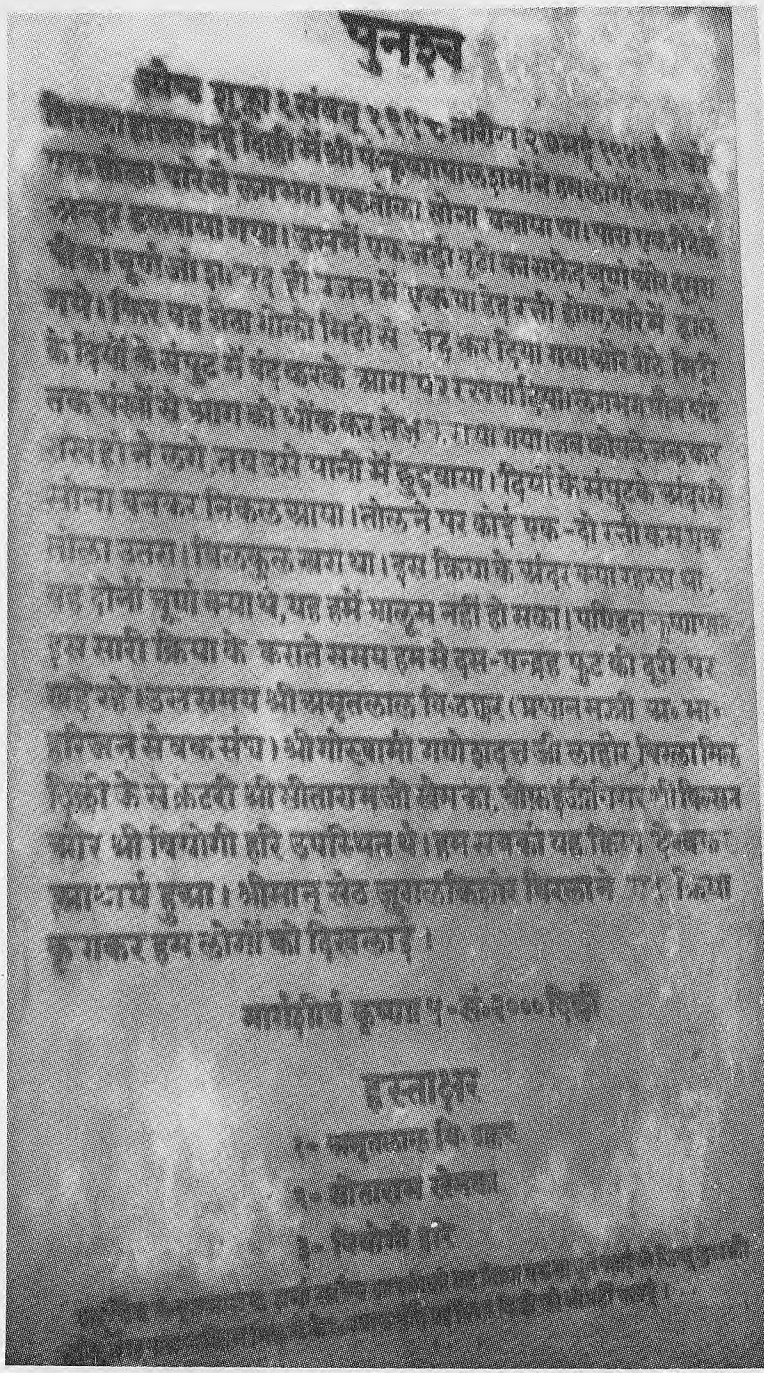 पुनश्च
ज्येष्ठ शुक्ल १ संवत् १९९८ तारीख २७ मई १९४१ ई० को
बिरला हाउस नई दिल्ली में श्री पं० कृष्णपाल शर्मा ने हमलोगों के सामने
एक तोला पारे से लगभग एक तोला सोना बनाया था। पारा एक रीठे के
अन्दर डलवाया गया। उसमें एक जड़ी बूटी का सफेद चूर्ण और दूसरा
पीला चूर्ण जो शायद ही वजन में एक या डेढ रत्ती होगा, पारे में डाले
गये। फिर वह रीठा गीली मिट्टी से बंद कर दिया गया और मिट्टी
के दियों के संपुट में बंद करके आग पर रखवा दिया। लगभग पौन घंटे
तक पंखों से आग को धौंक कर तेज कराया गया। जब कोयले जल कर
राख होने लगे, तब उसे पानी में छुड़वाया। दियों के संपुट के अंदर से
सोना बनकर निकल आया। तोलने पर कोई एक-दो रत्ती कम एक
तोला उतरा। बिलकुल खरा था। इस क्रिया के अंदर क्या रहस्य था,
वह दोनों चूर्ण क्या थे, यह हमें मालूम नहीं हो सका। पण्डित कृष्णपाल
इस सारी क्रिया के कराते समय हम से दस-पन्द्रह फुट की दूरी पर
खड़े रहे। उस समय श्री अमृतलाल वि० ठक्कर (प्रधान मन्त्री अ० भा०
हरिजन सेवक संघ) श्री गोस्वामी गणेशदत्त जी लाहौर, बिरला मिल
दिल्ली के सेक्रेटरी श्री सीताराम जी खेमका, चीफ इंजीनियर श्री विल्सन
और श्री वियोगी हरि उपस्थित थे। हम सबको यह क्रिया देखकर
आश्चर्य हुआ। श्रीमान् सेठ जुगलकिशोर बिरला ने यह क्रिया
कृपाकर हम लोगों को दिखलाई।
मार्गशीर्ष कृष्णा ५-सं० २००० दिल्ली
हस्ताक्षर
१- अमृतलाल वि० ठक्कर
२- सीताराम खेमका
३- वियोगी हरि